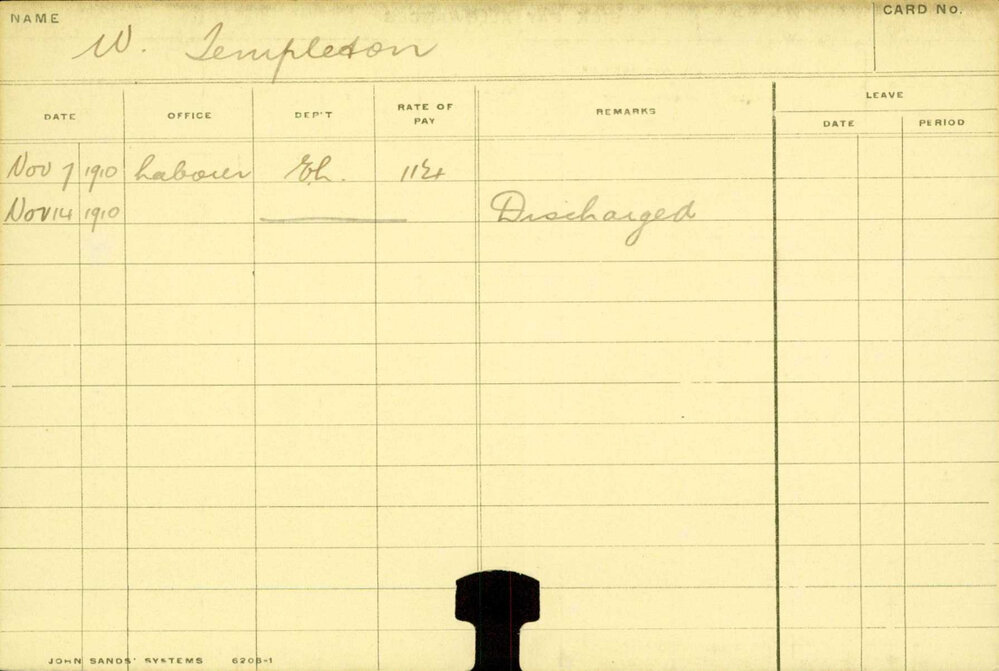 NAME
W. Templeton
CARD No.
DATE OFFICE DEP'T RATE OF PAY REMARKS LEAVE
DATE PERIOD
Nov 7 1910 Labourer
Nov 14 1910 Discharged
JOHN SANDS' SYSTEMS 6208-1